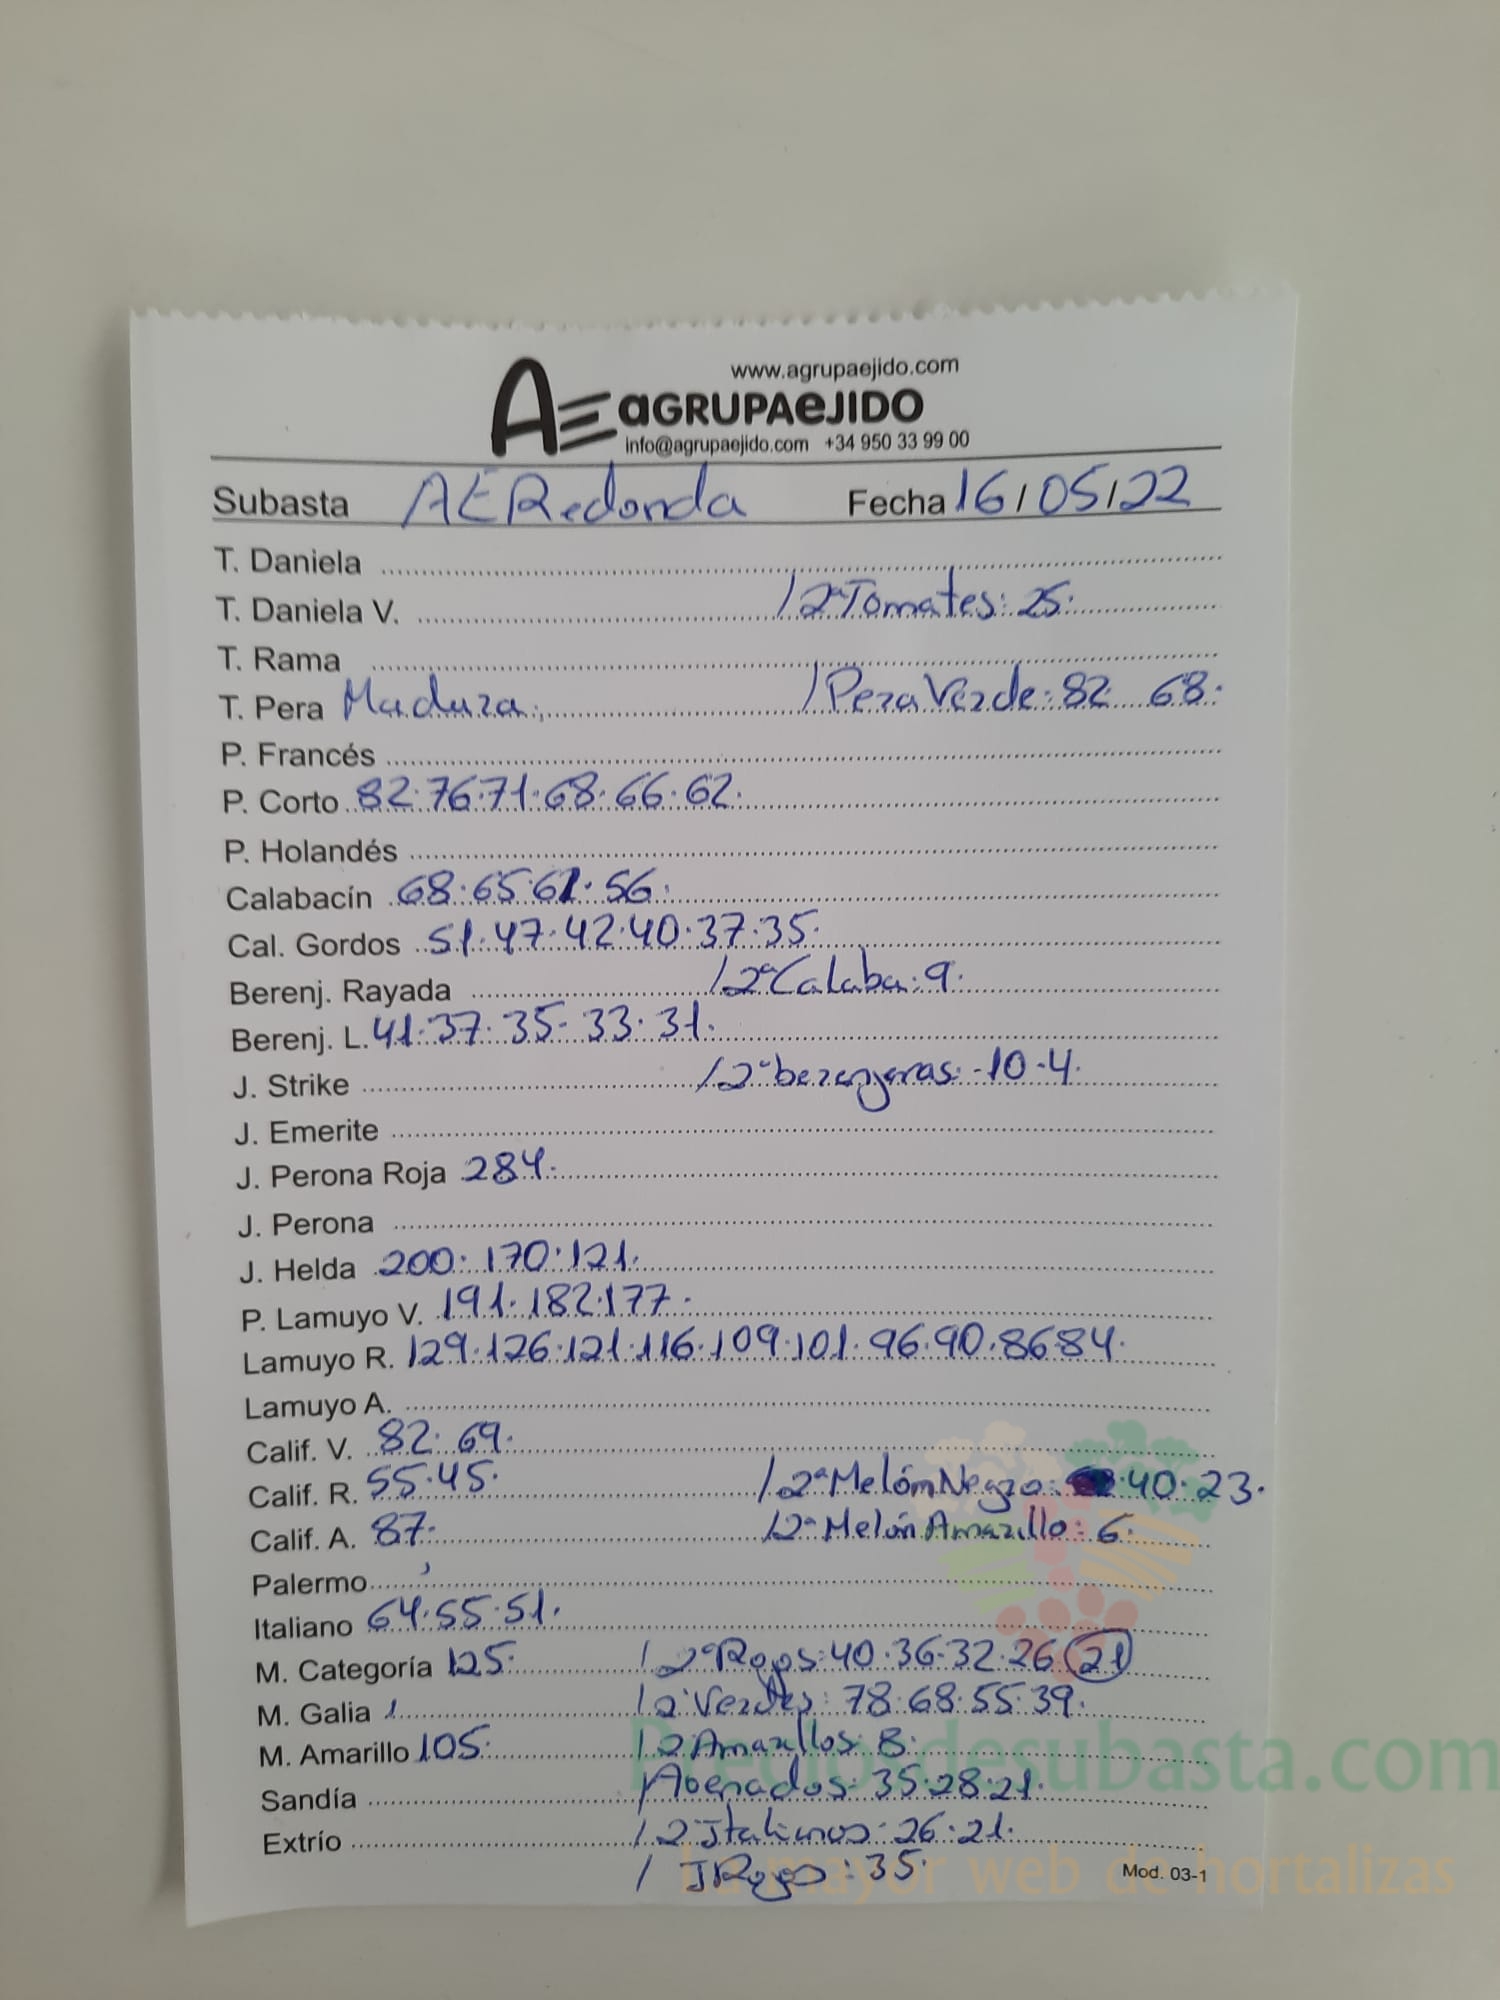 www.agrupaejido.com
AE aGRUPAeJIDO
info@agrupaejido.com +34 950 33 99 00
Subasta AE Redonda Fecha 16/05/22
T. Daniela
T. Daniela V. /2ª Tomates: 25.
T. Rama
T. Pera Madura: /Pera Verde: 82. 68.
P. Francés
P. Corto 82.76.71.68.66.62.
P. Holandés
Calabacín 68.65.61.56.
Cal. Gordos 51.47.42.40.37.35.
Berenj. Rayada /2ª Calaba: 9.
Berenj. L. 41.37.35.33.31.
J. Strike /2ª berenjenas: 10.4.
J. Emerite
J. Perona Roja 284.
J. Perona
J. Helda 200.170.121.
P. Lamuyo V. 191.182.177.
Lamuyo R. 129.126.121.116.109.101.96.90.86.84.
Lamuyo A.
Calif. V. 82.69.
Calif. R. 55.45. /2ª Melón Negro: 40.23.
Calif. A. 87. /2ª Melón Amarillo: 6.
Palermo
Italiano 64.55.51.
M. Categoría 125. /2ª Rojos: 40.36.32.26 21
M. Galia 1 /2ª Verdes: 78.68.55.39.
M. Amarillo 105. /2 Amarillos: 8.
Sandía / 35.28.21.
Extrío /2ª Italianos: 26.21.
/ J Rojos: 35.
Mod. 03-1
Preciosdesubasta.com
La mayor web de hortalizas